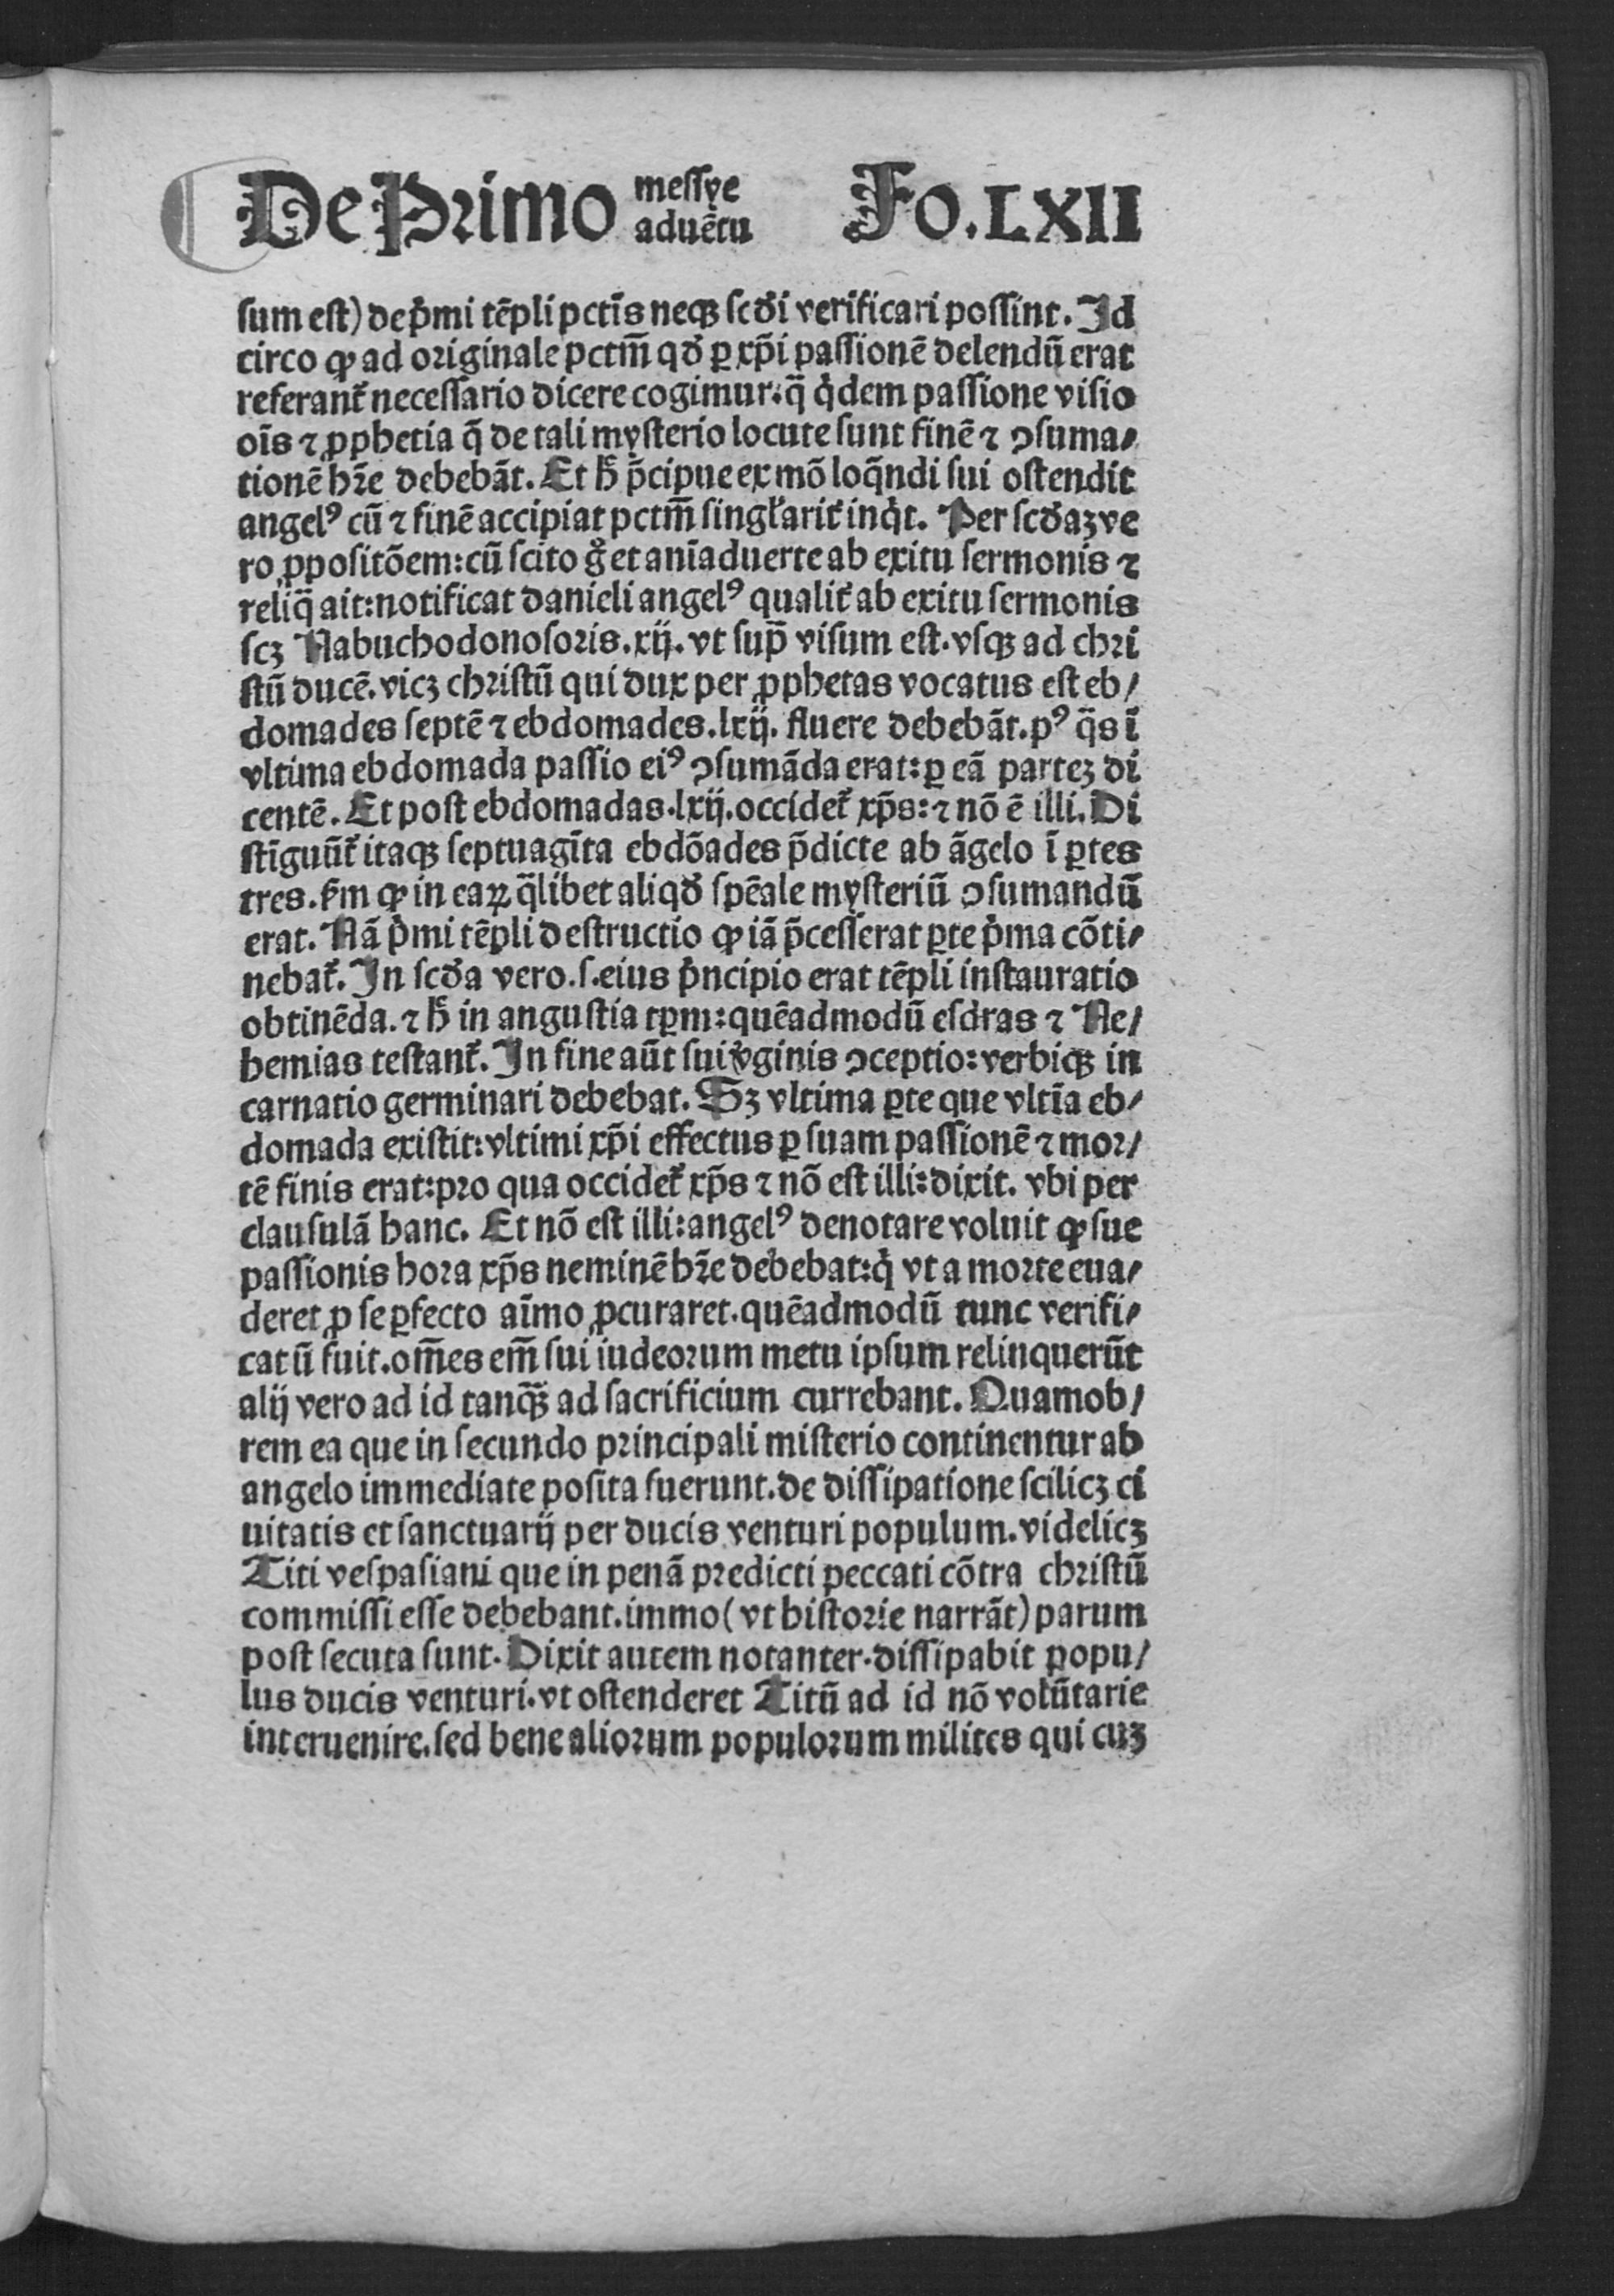 De Primo messye aduētu Fo. LXII
sum est) de pͥmi tēpli pctīs neqꝫ scđi verificari possint. Id
circo ꝙ ad originale pctm̄ qđ ꝑ xp̄i passionē delendū erat
referant᷑ necessario dicere cogimur: q̄ qͥdem passione visio
oīs ⁊ ꝓphetia q̄ de tali mysterio locute sunt finē ⁊ ↄsuma⸗
tionē hr̄e debebāt. Et ħ p̄cipue ex mō loq̄ndi sui ostendit
angelꝰ cū ⁊ finē accipiat pctm̄ singl̓arit᷑ inqͥt. Per scđaꝫ ve
ro ꝓpositōem: cū scito gͦ et anīaduerte ab exitu sermonis ⁊
reliq̄ ait: notificat danieli angelꝰ qualit᷑ ab exitu sermonis
scꝫ Nabuchodonosoris .xij. vt sup̄ visum est. vsqꝫ ad chri
stū ducē. vicꝫ christū qui dux per ꝓphetas vocatus est eb/
domades septē ⁊ ebdomades .lxij. fluere debebāt. pꝰ q̄s ī
vltima ebdomada passio eiꝰ ↄsumāda erat: ꝑ eā parteꝫ di
centē. Et post ebdomadas .lxij. occidet᷑ xp̄s: ⁊ nō ē illi. Di
stīguūt᷑ itaqꝫ septuagīta ebdōades p̄dicte ab āgelo ī ꝑtes
tres. ẜm ꝙ in eaꝝ q̄libet aliqđ spēale mysteriū ↄsumandū
erat. Nā pͥmi tēpli destructio ꝙ iā p̄cesserat ꝑte pͥma cōti⸗
nebat᷑. In scđa vero .s. eius pͥncipio erat tēpli instauratio
obtinēda. ⁊ ħ in angustia tꝑm: quēadmodū esdras ⁊ Ne/
hemias testant᷑. In fine aūt sui vͥginis ↄceptio: verbiqꝫ in
carnatio germinari debebat. Sꝫ vltima ꝑte que vltīa eb⸗
domada existit: vltimi xp̄i effectus ꝑ suam passionē ⁊ mor/
tē finis erat: pro qua occidet᷑ xp̄s ⁊ nō est illi: dixit. vbi per
clausulā hanc. Et nō est illi: angelꝰ denotare voluit ꝙ sue
passionis hora xp̄s neminē hr̄e debebat: qͥ vt a morte eua⸗
deret ꝓ se ꝑfecto aīmo ꝓcuraret. quēadmodū tunc verifi⸗
catū fuit. om̄es em̄ sui iudeorum metu ipsum relinquerūt
alij vero ad id tanqꝫ̄ ad sacrificium currebant. Quamob/
rem ea que in secundo principali misterio continentur ab
angelo immediate posita fuerunt. de dissipatione scilicꝫ ci
uitatis et sanctuarij per ducis venturi populum. videlicꝫ
Titi vespasiani que in penā predicti peccati cōtra christū
commissi esse debebant. immo (vt historie narrāt) parum
post secuta sunt. Dixit autem notanter. dissipabit popu/
lus ducis venturi. vt ostenderet Titū ad id nō volūtarie
interuenire. sed bene aliorum populorum milites qui cuꝫ